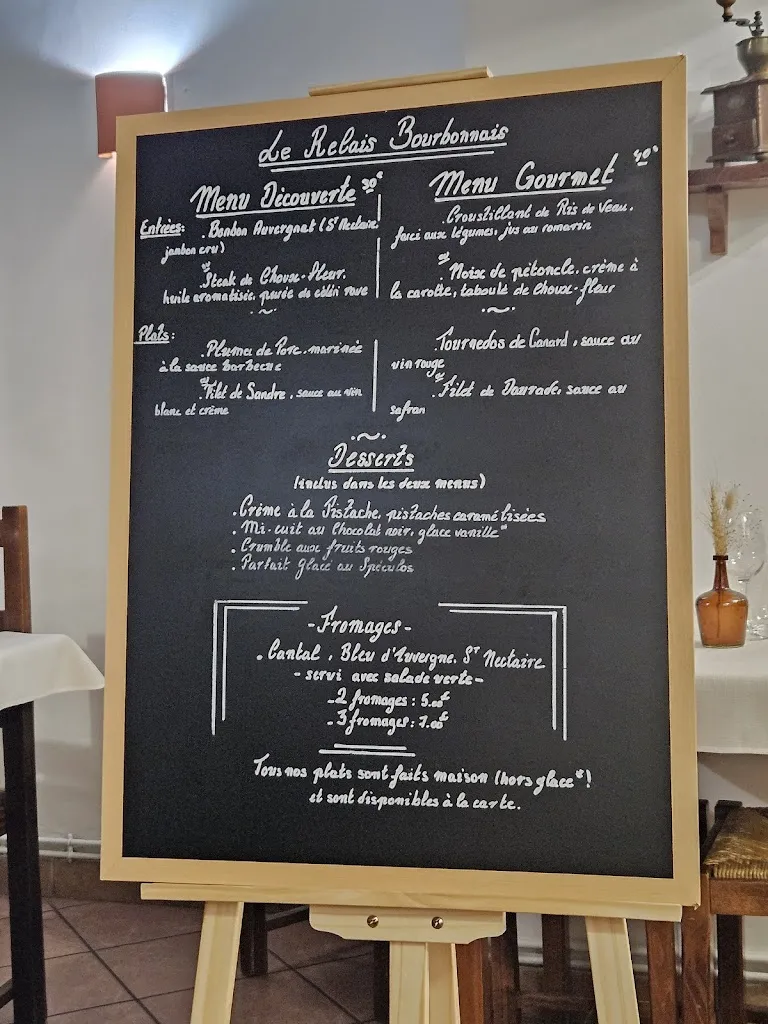 Le Relais Bourbonnais
Menu Découverte 30€
Entrées: . Bonbon Auvergnat (St Nectaire,
jambon cru)
ou
. Steak de Choux-fleur,
huile aromatisée, purée de céléri rave
~
Plats:
. Pluma de Porc, marinée
à la sauce barbecue
ou
. Filet de Sandre, sauce au vin
blanc et crème
Menu Gourmet 40€
. Croustillant de Ris de Veau,
farci aux légumes, jus au romarin
ou
. Noix de pétoncle, crème à
la carotte, taboulé de choux-fleur
~
. Tournedos de Canard, sauce au
vin rouge
ou
. Filet de Daurade, sauce au
safran
~
Desserts
(inclus dans les deux menus)
. Crème à la Pistache, pistaches caramélisées
. Mi-cuit au Chocolat noir, glace vanille*
. Crumble aux fruits rouges
. Parfait glacé au Spéculos
- Fromages -
. Cantal, Bleu d'Auvergne, St Nectaire
- servi avec salade verte -
- 2 fromages : 5.00€
- 3 fromages : 7.00€
Tous nos plats sont faits maison (hors glace*)
et sont disponibles à la carte.